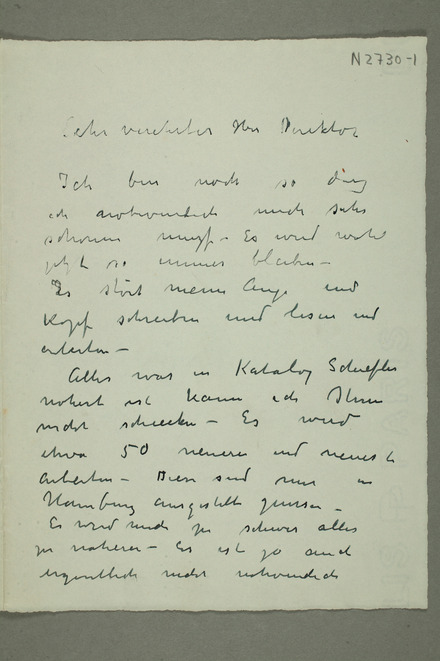 N2730-1
Sehr verehrter Herr Direktor
Ich bin noch so
ich mich sehr
schonen muß – Es wird wohl
jetzt so immer bleiben –
Es stört meine Auge und
Kopf schreiben und lesen und
arbeiten –
Alles was im Katalog Schiefler
notiert ist kann ich Ihnen
nicht schicken – Es wird
etwa 50 neuere und neueste
Arbeiten – Diese sind nur in
Hamburg ausgestellt gewesen –
Es wird mich zu schwer alles
zu notieren – Es ist ja auch
eigentlich nicht notwendig